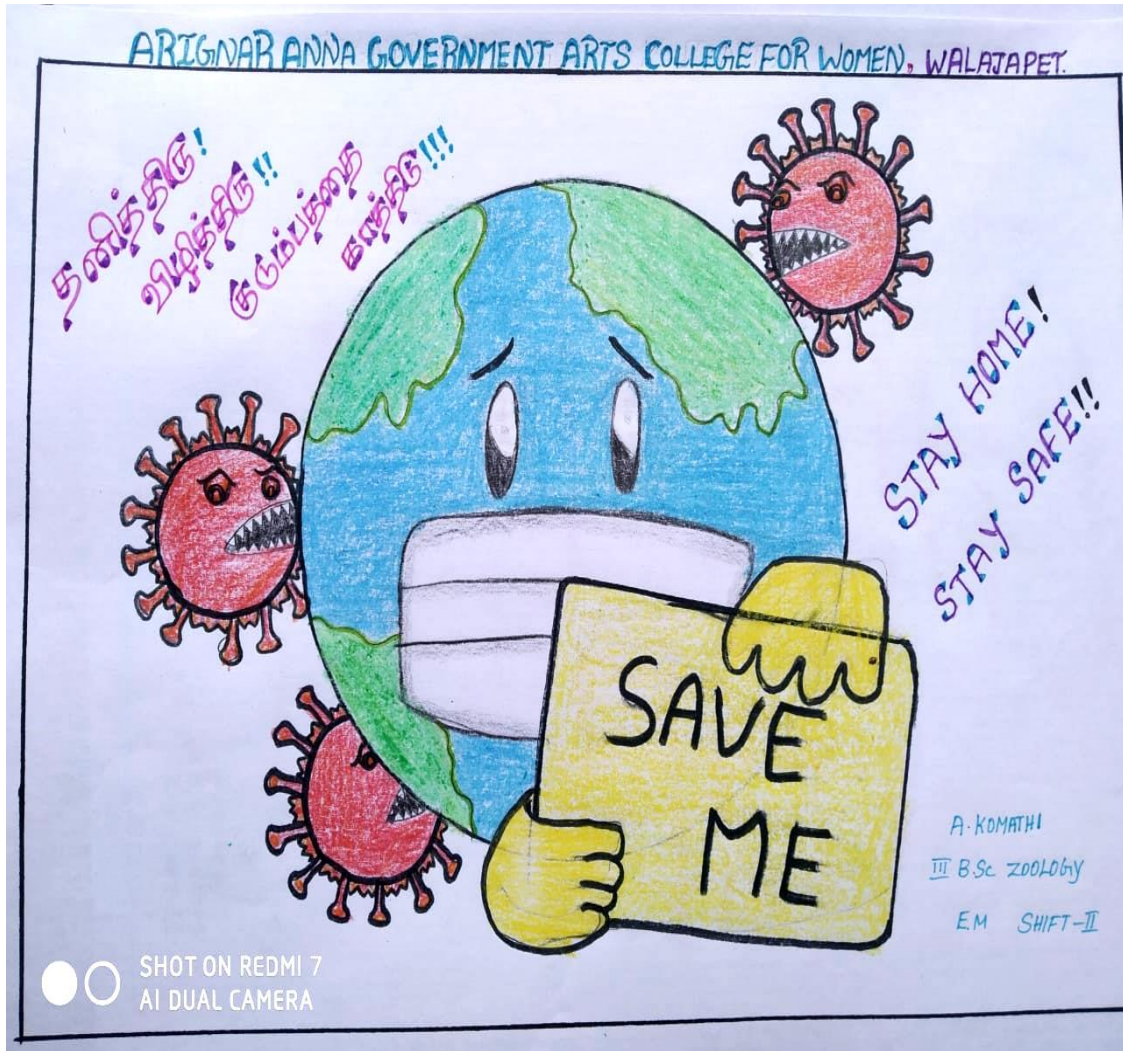 ARIGNAR ANNA GOVERNMENT ARTS COLLEGE FOR WOMEN. WALAJAPET.
தனித்திரு!
விழித்திரு!!
குடும்பத்தை
காத்திடு!!!
STAY HOME!
STAY SAFE!!
SAVE
ME
A. KOMATHI
III B.Sc ZOOLOGY
E.M SHIFT-II
SHOT ON REDMI 7
AI DUAL CAMERA